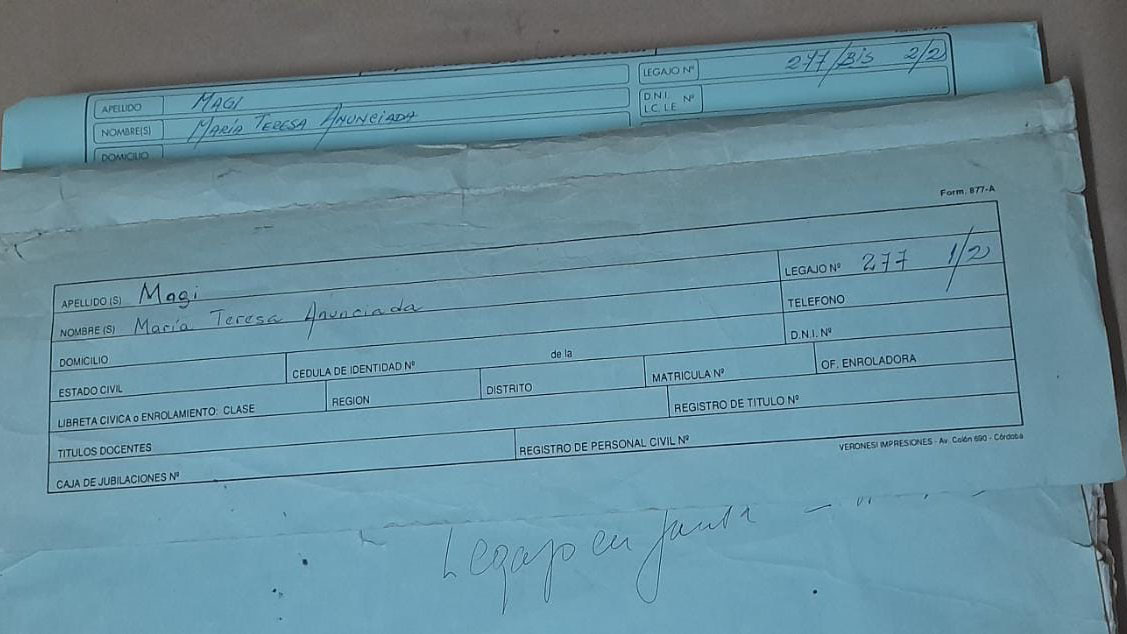 APELLIDO MAGI LEGAJO Nº 277/BIS 2/2
NOMBRE(S) MARÍA TERESA ANUNCIADA D.N.I. L.C. L.E. Nº
DOMICILIO
Form. 877-A
APELLIDO (S) Magi LEGAJO Nº 277 1/2
NOMBRE (S) María Teresa Anunciada TELEFONO
DOMICILIO D.N.I. Nº
ESTADO CIVIL CEDULA DE IDENTIDAD Nº de la MATRICULA Nº OF. ENROLADORA
LIBRETA CIVICA o ENROLAMIENTO: CLASE REGION DISTRITO REGISTRO DE TITULO Nº
TITULOS DOCENTES REGISTRO DE PERSONAL CIVIL Nº
CAJA DE JUBILACIONES Nº
VERONESI IMPRESIONES - Av. Colón 690 - Córdoba
Legajo en Junta